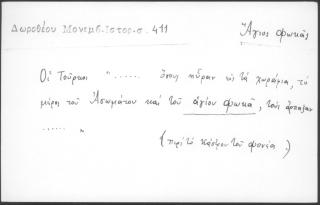 Δωροθέου Μονεμβ. Ιστορ. σ. 411
Ἅγιος Φωκᾶς
Οἱ Τοῦρκοι "...... ὅσους ηὗραν εἰς τὰ χωράφια, τὰ
μέρη τοῦ Ἀσωμάτου καὶ τοῦ ἁγίου Φωκᾶ, τοὺς ἅρπαξαν
...... "
(περὶ τὸ κάστρον τοῦ Φονέα.)